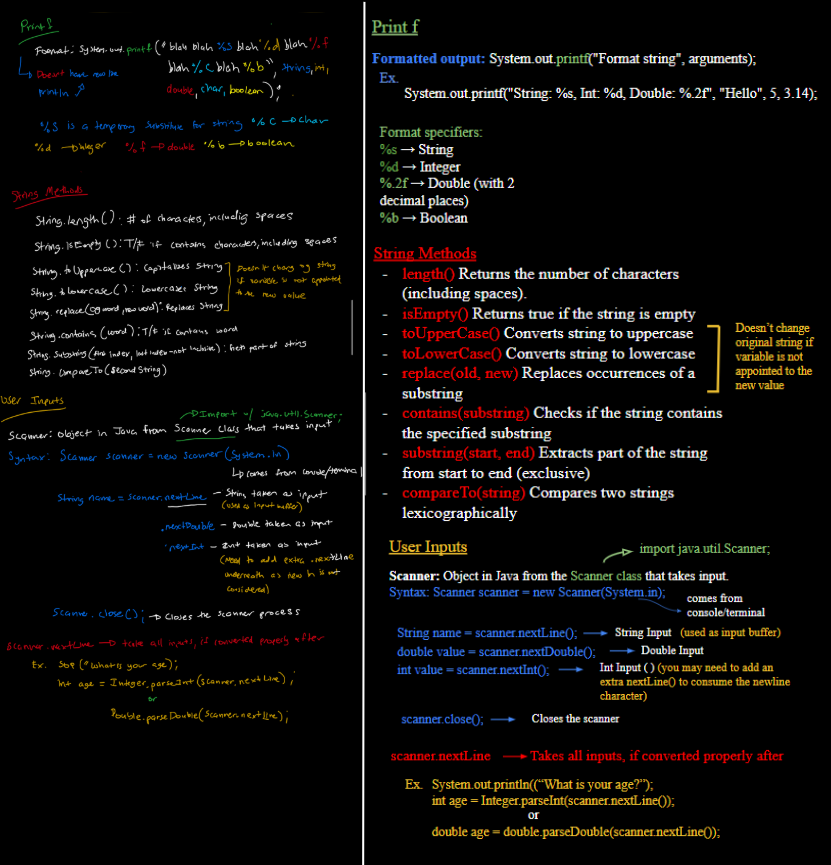 Print f
Format: System.out.printf("blah blah %s blah %d blah %f
blah %c blah %b", string, int,
double, char, boolean);
Doesn't have new line
println
%s is a temporary substitute for string %c → char
%d → integer %f → double %b → boolean
String Methods
String.length(): # of characters, including spaces
String.isEmpty(): T/F if contains characters, including spaces
String.toUppercase(): Capitalizes String
String.toLowercase(): Lowercases String
String.replace(og word, new word): Replaces String
Doesn't change og string
if variable is not appointed
to the new value
String.contains(word): T/F if contains word
String.Substring(first index, last index-not inclusive): part of string
String.compareTo(Second String)
User Inputs
→ Import java.util.Scanner;
Scanner: Object in Java from Scanner class that takes input
Syntax: Scanner scanner = new Scanner(System.in)
↳ comes from console/terminal
String name = scanner.nextLine — String taken as input
(used as input buffer)
.nextDouble — Double taken as input
.nextInt — Int taken as input
(Need to add extra .nextLine
underneath as new ln is not
considered)
Scanner.close(); → Closes the scanner process
Scanner.nextLine → take all inputs, if converted properly after
Ex. Sop("What is your age);
int age = Integer.parseInt(scanner.nextLine);
or
Double.parseDouble(scanner.nextLine);
Print f
Formatted output: System.out.printf("Format string", arguments);
Ex.
System.out.printf("String: %s, Int: %d, Double: %.2f", "Hello", 5, 3.14);
Format specifiers:
%s → String
%d → Integer
%.2f → Double (with 2
decimal places)
%b → Boolean
String Methods
- length() Returns the number of characters
(including spaces).
- isEmpty() Returns true if the string is empty
- toUpperCase() Converts string to uppercase
- toLowerCase() Converts string to lowercase
- replace(old, new) Replaces occurrences of a
substring
Doesn't change
original string if
variable is not
appointed to the
new value
- contains(substring) Checks if the string contains
the specified substring
- substring(start, end) Extracts part of the string
from start to end (exclusive)
- compareTo(string) Compares two strings
lexicographically
User Inputs
import java.util.Scanner;
Scanner: Object in Java from the Scanner class that takes input.
Syntax: Scanner scanner = new Scanner(System.in);
comes from
console/terminal
String name = scanner.nextLine(); → String Input (used as input buffer)
double value = scanner.nextDouble(); → Double Input
int value = scanner.nextInt(); → Int Input ( ) (you may need to add an
extra nextLine() to consume the newline
character)
scanner.close(); → Closes the scanner
scanner.nextLine → Takes all inputs, if converted properly after
Ex. System.out.println(("What is your age?");
int age = Integer.parseInt(scanner.nextLine());
or
double age = double.parseDouble(scanner.nextLine());